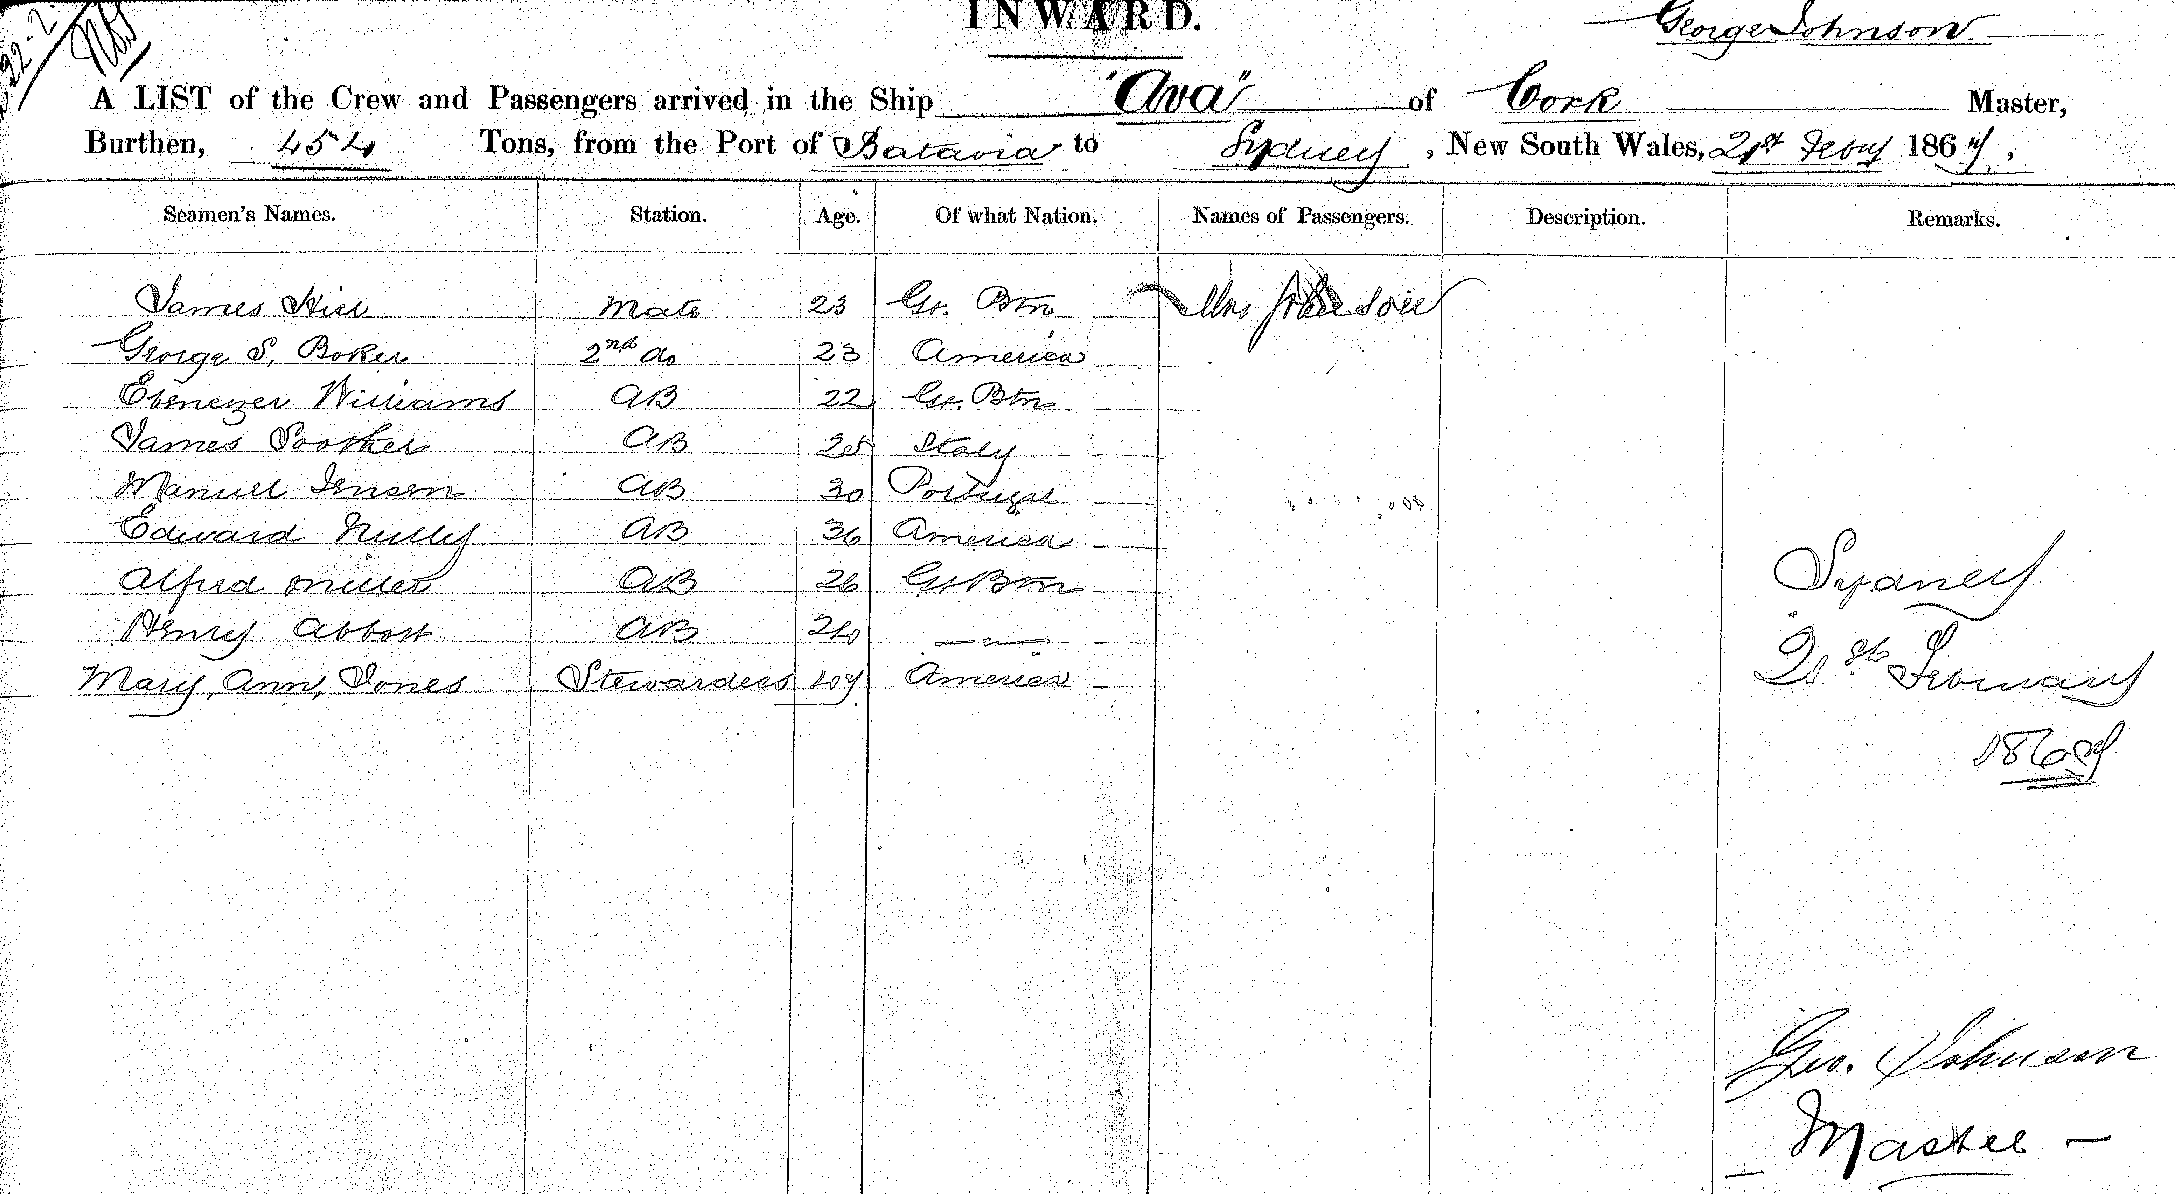 22-2
INWARD.
George Johnson
A LIST of the Crew and Passengers arrived in the Ship "Ava" of Cork Master,
Burthen, 454 Tons, from the Port of Batavia to Sydney, New South Wales, 21st Feby 1867,
Seamen's Names. Station. Age. Of what Nation. Names of Passengers. Description. Remarks.
James Hill Mate 23 Gr. Btn Mrs Johnson
George S. Boker 2nd do 23 America
Ebenezer Williams AB 22 Gr. Btn
James AB 25 Italy
Manuel Jensen AB 30 Portugal
Edward Nully AB 36 America
Alfred Miller AB 26 Gr Btn
Henry Abbott AB 24 — " —
Mary, Ann, Jones Stewardess 47 America
Sydney
21st February
1867
Geo. Johnson
Master —